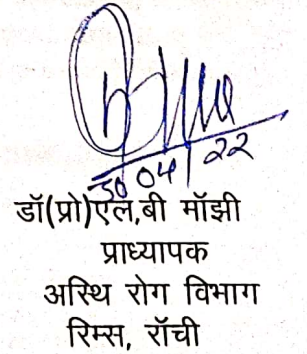 30 04/22
डॉ(प्रो)एल,बी मॉझी
प्राध्यापक
अस्थि रोग विभाग
रिम्स, रॉची